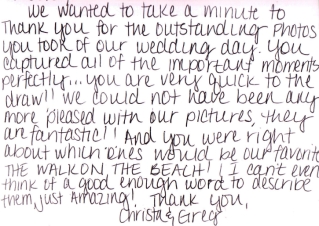 We wanted to take a minute to
Thank you for the outstanding photos
you took of our wedding day. You
captured all of the important moments
perfectly... you are very quick to the
draw!! We could not have been any
more pleased with our pictures, they
are fantastic!! And you were right
about which ones would be our favorite
THE WALK ON THE BEACH!! I can't even
think of a good enough word to describe
them, just Amazing! Thank you,
Christa & Greg